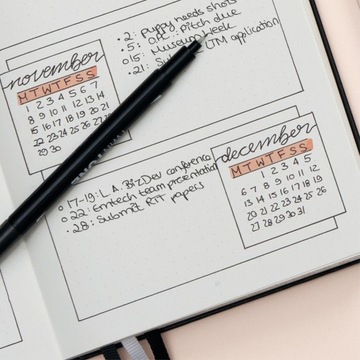 november
M T W T F S S
1 2 3 4 5 6 7
8 9 10 11 12 13 14
15 16 17 18 19 20 21
22 23 24 25 26 27 28
29 30
• 2: puppy needs shots
• 5: pitch due
○ 15: Museum Week
• 21: TM application
december
M T W T F S S
1 2 3 4 5
6 7 8 9 10 11 12
13 14 15 16 17 18 19
20 21 22 23 24 25 26
27 28 29 30 31
○ 17-19: L.A. BizDev conference
○ 22: Emtech team presentation
• 28: Submit RIT papers